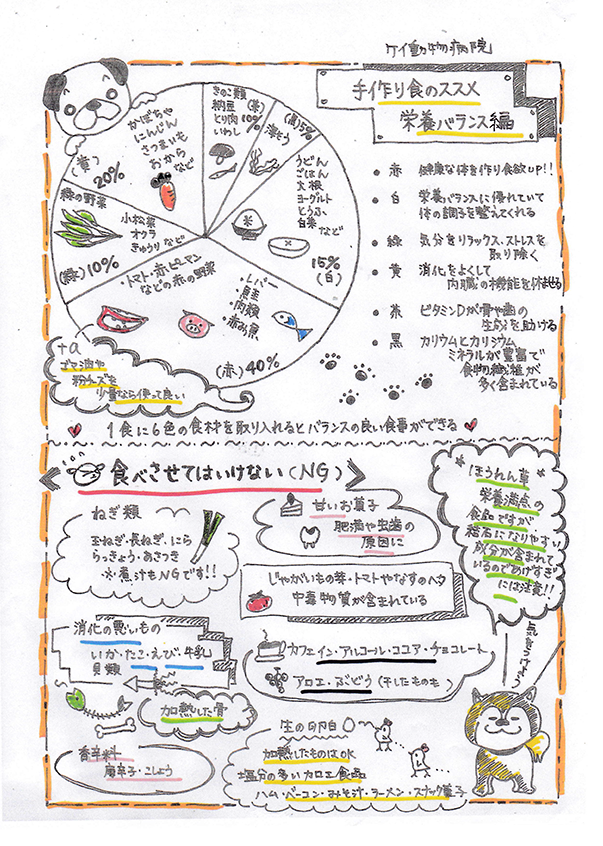 ケイ動物病院
手作り食のススメ
栄養バランス編
かぼちゃ
にんじん
さつまいも
おから
など
(黄)
20%
きのこ類
納豆 (茶)
とり肉 10%
いわし
(黒)5%
海そう
うどん
ごはん
大根
ヨーグルト
とうふ
白菜
など
15%
(白)
緑の野菜
小松菜
オクラ
きゅうり など
(緑)10%
・トマト・赤ピーマン
などの赤の野菜
・レバー
・鮭
・肉類
・赤み魚
(赤)40%
+α
ゴマ油や
粉チーズを
少量なら使って良い
● 赤 健康な体を作り食欲UP!!
● 白 栄養バランスに優れていて
体の調子を整えてくれる
● 緑 気分をリラックス・ストレスを
取り除く
● 黄 消化をよくして
内臓の機能を休ませる
● 茶 ビタミンDが骨や歯の
生成を助ける
● 黒 カリウムとカリシウム
ミネラルが豊富で
食物繊維が
多く含まれている
1食に6色の食材を取り入れるとバランスの良い食事ができる
食べさせてはいけない(NG)
ねぎ類
玉ねぎ・長ねぎ・にら
らっきょう・あさつき
※煮汁もNGです!!
甘いお菓子
肥満や虫歯の
原因に
ほうれん草
栄養満点の
食品ですが
結石になりやすい
成分が含まれて
いるのであげすぎ
には注意!!
じゃがいもの芽・トマトやなすのヘタ
中毒物質が含まれている
消化の悪いもの
いか・たこ・えび・牛乳
貝類
カフェイン・アルコール・ココア・チョコレート
アロエ・ぶどう(干したものも)
気をつけよう
加熱した骨
生の卵白
加熱したものはOK
塩分の多い加工食品
ハム・ベーコン・みそ汁・ラーメン・スナック菓子
香辛料
唐辛子・こしょう